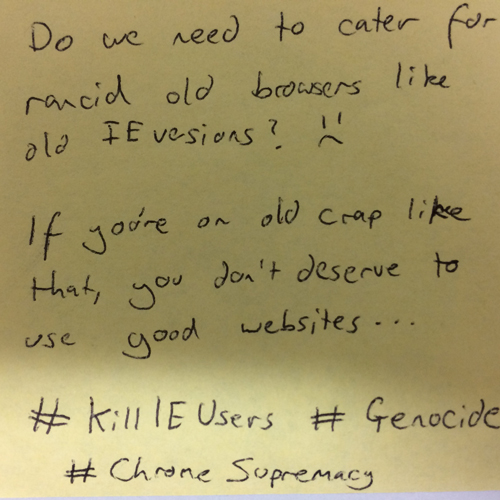 Do we need to cater for
rancid old browsers like
old IE vesions? :(
If you're on old crap like
that, you don't deserve to
use good websites...
# Kill IE Users # Genocide
# Chrome Supremacy